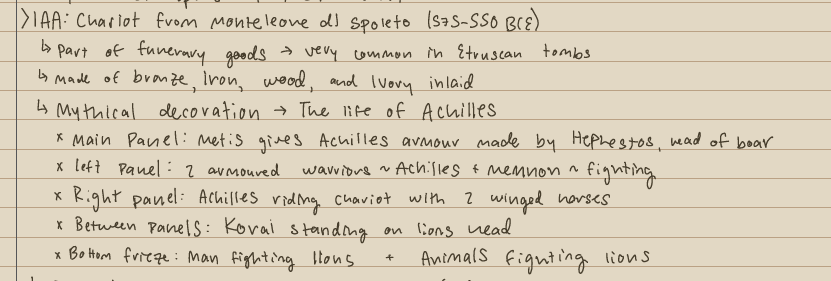 >IAA: Chariot from Monteleone di Spoleto (575-550 BCE)
↳ Part of funerary goods → very common in Etruscan tombs
↳ Made of bronze, Iron, wood, and Ivory inlaid
↳ Mythical decoration → The life of Achilles
x Main Panel: Metis gives Achilles armour made by Hephestos, head of boar
x Left Panel: 2 armoured warriors ~ Achilles + memnon ~ fighting
x Right panel: Achilles riding chariot with 2 winged horses
x Between Panels: Korai standing on lions head
x Bottom frieze: Man fighting lions + Animals fighting lions